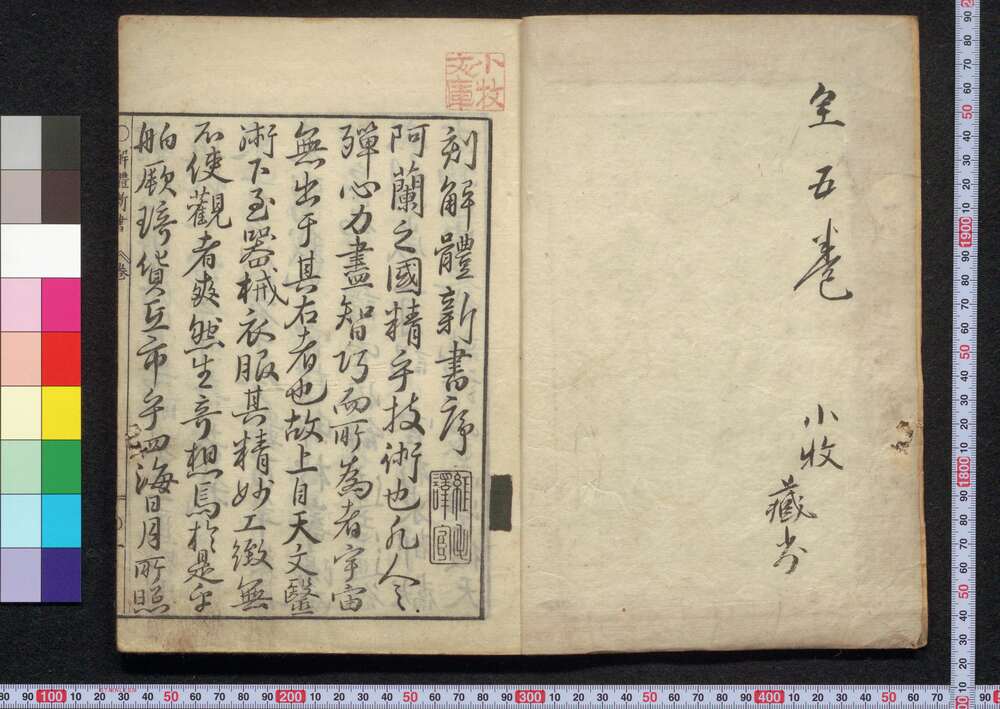 全五卷
小牧
藏书
小牧
文庫
刻解體新書序
阿蘭之國精乎技術也凡人之
殫心力盡智巧而所為者宇宙
無出于其右者也故上自天文醫
術下至器械衣服其精妙工緻無
不使觀者爽然生奇想焉於是乎
舶厥琦貨互市乎四海日月所照
解體新書
卷
譯官